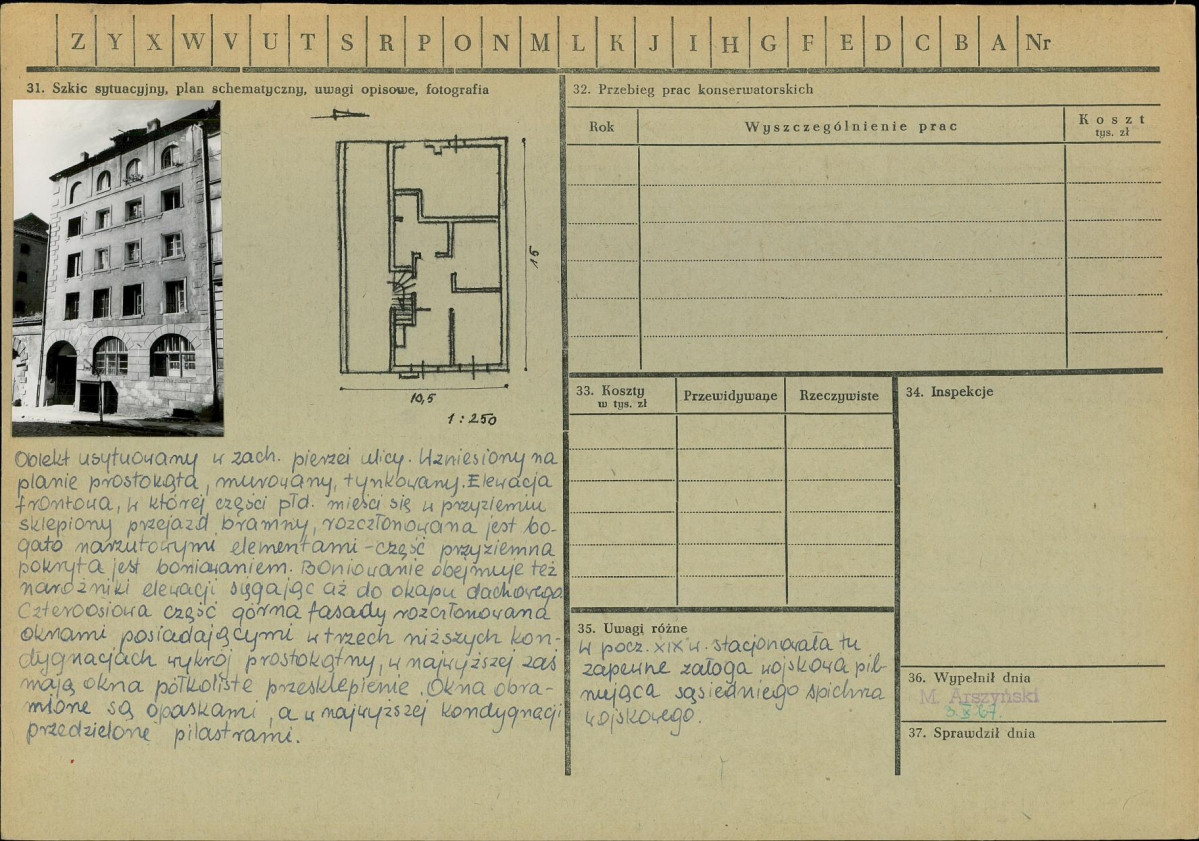 Z Y X W V U T S R P O N M L K J I H G F E D C B A Nr
31. Szkic sytuacyjny, plan schematyczny, uwagi opisowe, fotografia
15
10,5
1 : 250
Obiekt usytuowany w zach. pierzei ulicy. Wzniesiony na
planie prostokąta, murowany, tynkowany. Elewacja
frontowa, w której części płd. mieści się w przyziemiu
sklepiony przejazd bramny, rozczłonowana jest bo-
gato narzutowymi elementami - część przyziemna
pokryta jest boniowaniem. Boniowanie obejmuje też
narożniki elewacji sięgając aż do okapu dachowego.
Czteroosiowa część górna fasady rozczłonowana
oknami posiadającymi w trzech niższych kon-
dygnacjach wykrój prostokątny, w najwyższej zaś
mają okna półkoliste przesklepienie. Okna obra-
mione są opaskami, a w najwyższej kondygnacji
przedzielone pilastrami.
32. Przebieg prac konserwatorskich
Rok
Wyszczególnienie prac
Koszt
tys. zł
33. Koszty
w tys. zł
Przewidywane
Rzeczywiste
34. Inspekcje
35. Uwagi różne
W pocz. XIX w. stacjonowała tu
zapewne załoga wojskowa pil-
nująca sąsiedniego spichrza
wojskowego.
36. Wypełnił dnia
M. Arszyński
3.X.67.
37. Sprawdził dnia